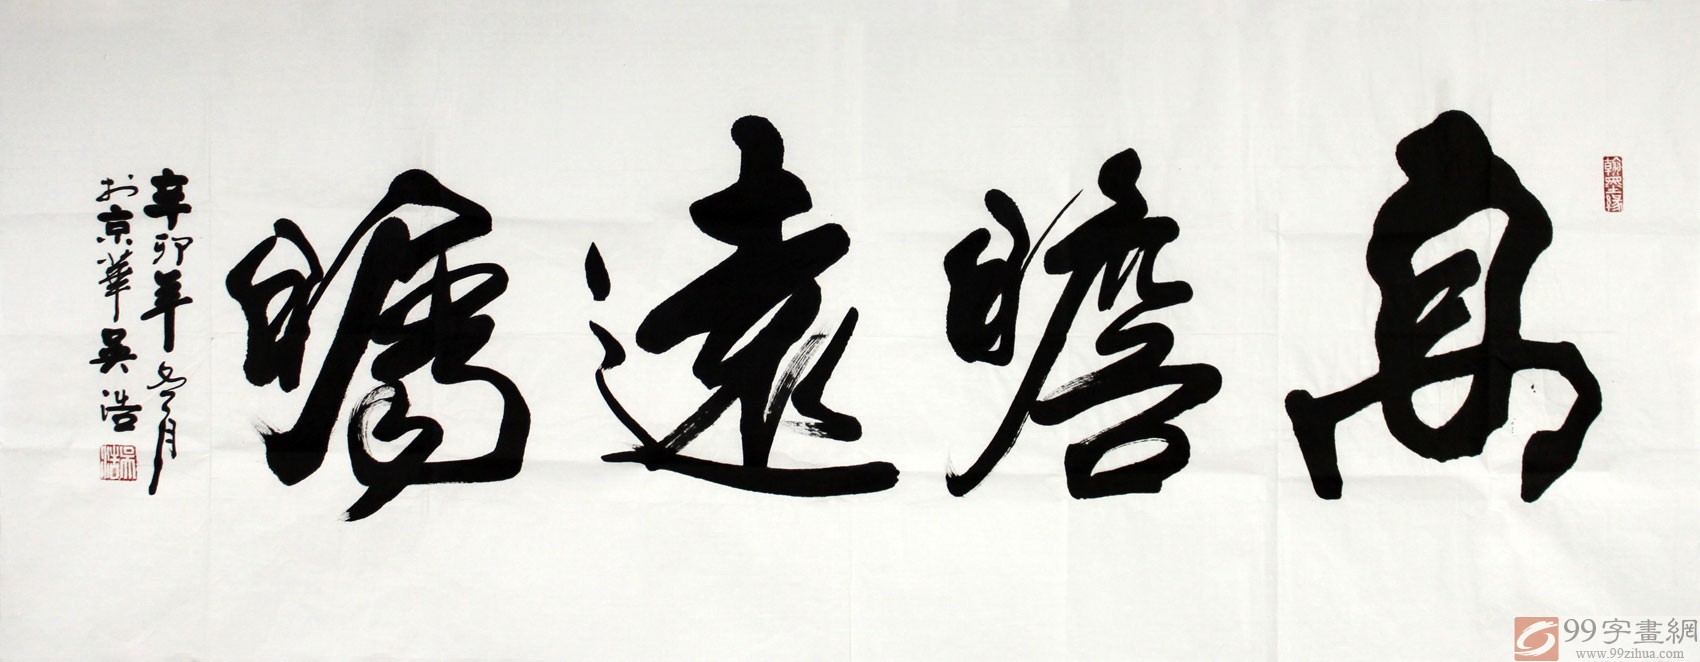 高瞻遠矚
辛卯年冬月
於京華吳浩
吳浩
翰墨緣
99字畫網
www.99zihua.com